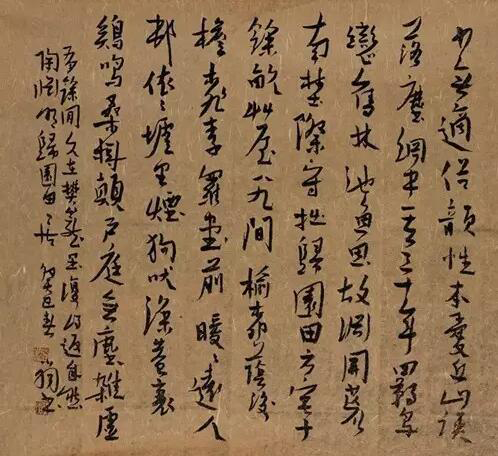 少無適俗韻性本愛丘山誤
落塵網中一去三十年羈鳥
戀舊林池魚思故淵開荒
南埜際守拙歸園田方宅十
餘畝艸屋八九間榆柳蔭後
檐桃李羅堂前曖〻遠人
邨依〻墟里煙狗吠深巷裏
鷄鳴桑樹顛戶庭無塵雜虛
室有餘閒久在樊籠里復得返自然
陶淵明歸園田居 癸巳春 書